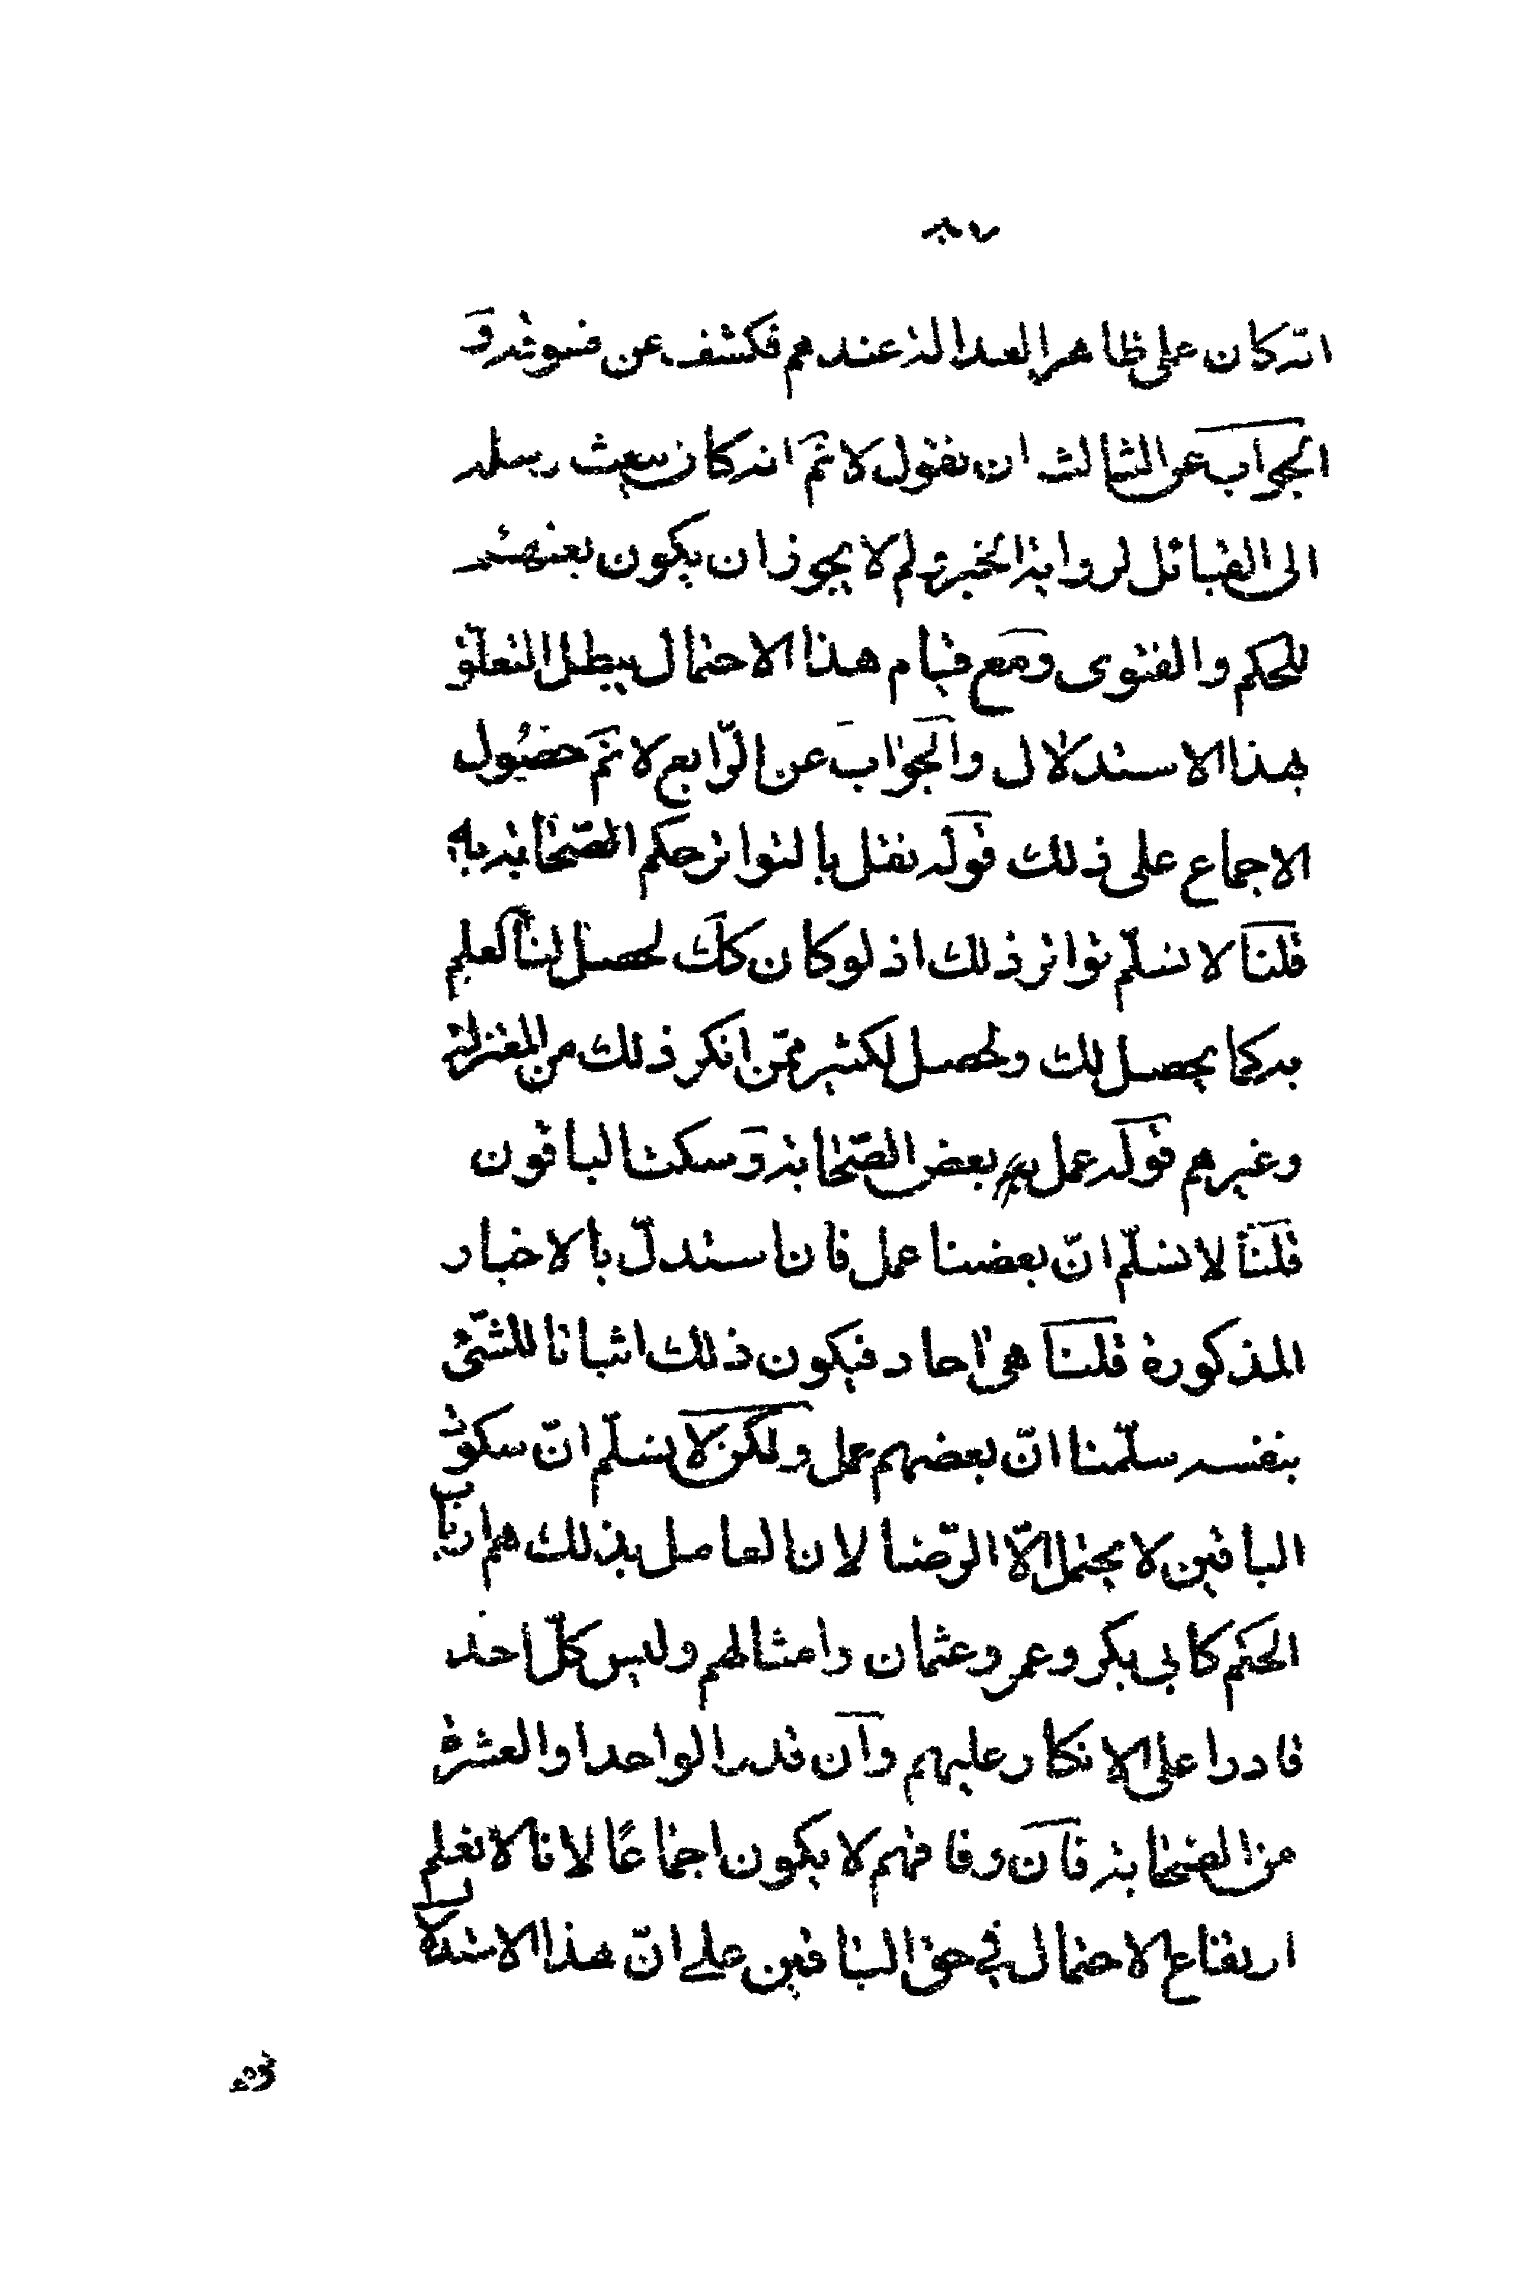 ٨٧
انه كان على ظاهر العدالة عندهم فكشف عن فسوقه و
الجواب عن الثالث ان نقول لا نم انه كان يبعث رسله
الى القبائل لرواية الخبر و لم لا يجوز ان يكون بعثهم
للحكم والفتوى ومع قيام هذا الاحتمال يبطل التعلق
بهذا الاستدلال والجواب عن الرّابع لا نم حصول
الاجماع على ذلك قوله نقل بالتواتر حكم الصّحابة به
قلنا لا نسلّم تواتر ذلك اذ لو كان كك لحصل لنا العلم
به كما يحصل لك ولحصل لكثير ممّن انكر ذلك من المعتزلة
وغيرهم قوله عمل به بعض الصّحابة وسكت الباقون
قلنا لا نسلّم انّ بعضنا عمل فان استدلّ بالاخبار
المذكورة قلنا هى احاد فيكون ذلك اثباتا للشّئ
بنفسه سلّمنا انّ بعضهم عمل ولكن لا نسلّم انّ سكوت
الباقين لا يحتمل الّا الرّضا لان العامل بذلك هم ارباب
الحكم كابى بكر وعمر وعثمان وامثالهم وليس كلّ احد
قادرا على الانكار عليهم وان قدر الواحد او العشرة
من الصحابة فان وفاقهم لا يكون اجماعًا لانا لا نعلم
ارتفاع الاحتمال في حق الباقين على انّ هذا الاستدلال